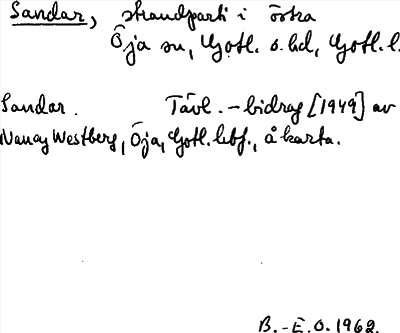 Sandar, strandparti i östra
Öja sn, Gotl. s. hd, Gotl. l.
Sandar. Tävl.-bidrag [1949] av
Nancy Westberg, Öja, Gotl. lbf., å karta.
B.-E.O. 1962.